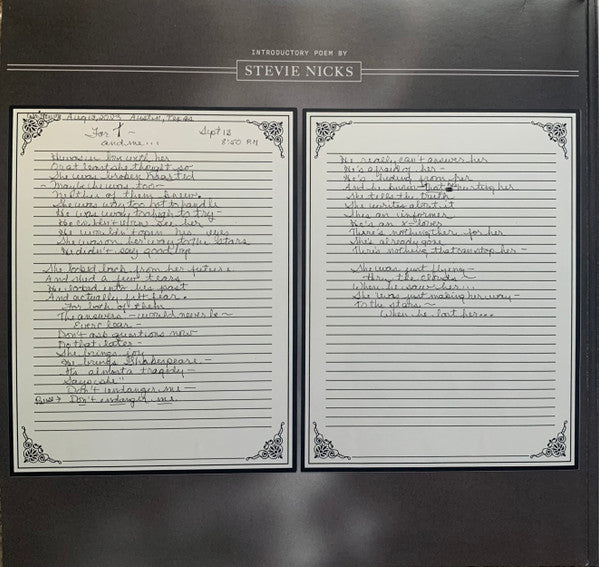 INTRODUCTORY POEM BY
STEVIE NICKS
Written Aug 13, 2023 Austin, Texas
For T ~ Sept 13
and me... 8:50 PM
He was in love with her
Or at least she thought so
She was broken hearted
~ Maybe he was too ~
Neither of them knew.
She was way too hot to handle
He was way too high to try -
He couldn't even see her
He wouldn't open his eyes
She was on her way to the stars
He didn't say goodbye
She looked back from her future.
And shed a few tears
He looked into his past
And actually felt fear.
For both of them
The answers - would never be ~
Ever clear -
Don't ask questions now
Do that later -
She brings joy
He brings Shakespeare -
It's almost a tragedy -
Says she"
Don't endanger me -
Don't endanger me.
He really can't answer her
He's afraid of her -
He's hiding from her
And he knows that he's hurting her
She tells the truth
She writes about it
She's an informer
He's an x-lover
There's nothing there for her
She's already gone
There's nothing that can stop her -
She was just flying -
Thru the clouds ~
When he saw her...
She was just making her way -
To the stars ~
When he lost her...